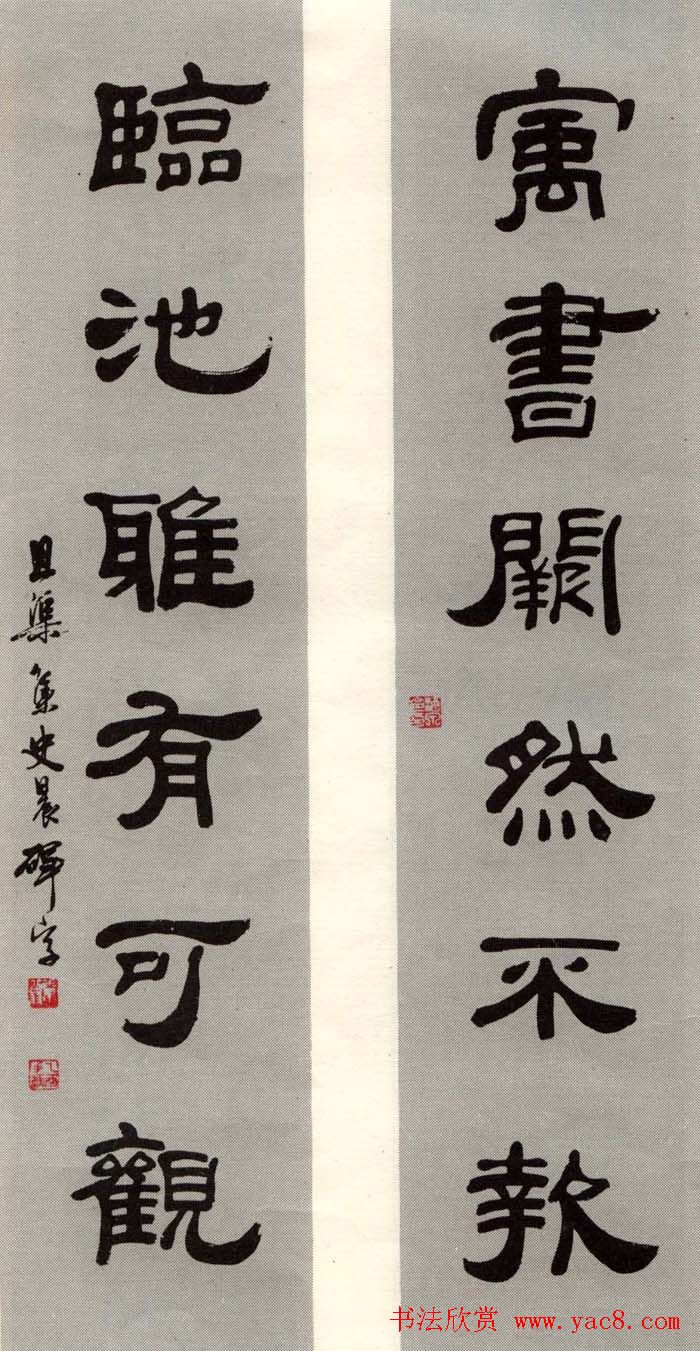 寓書闕然不報
臨池雅有可觀
且渠集史晨碑字
书法欣赏 www.yac8.com